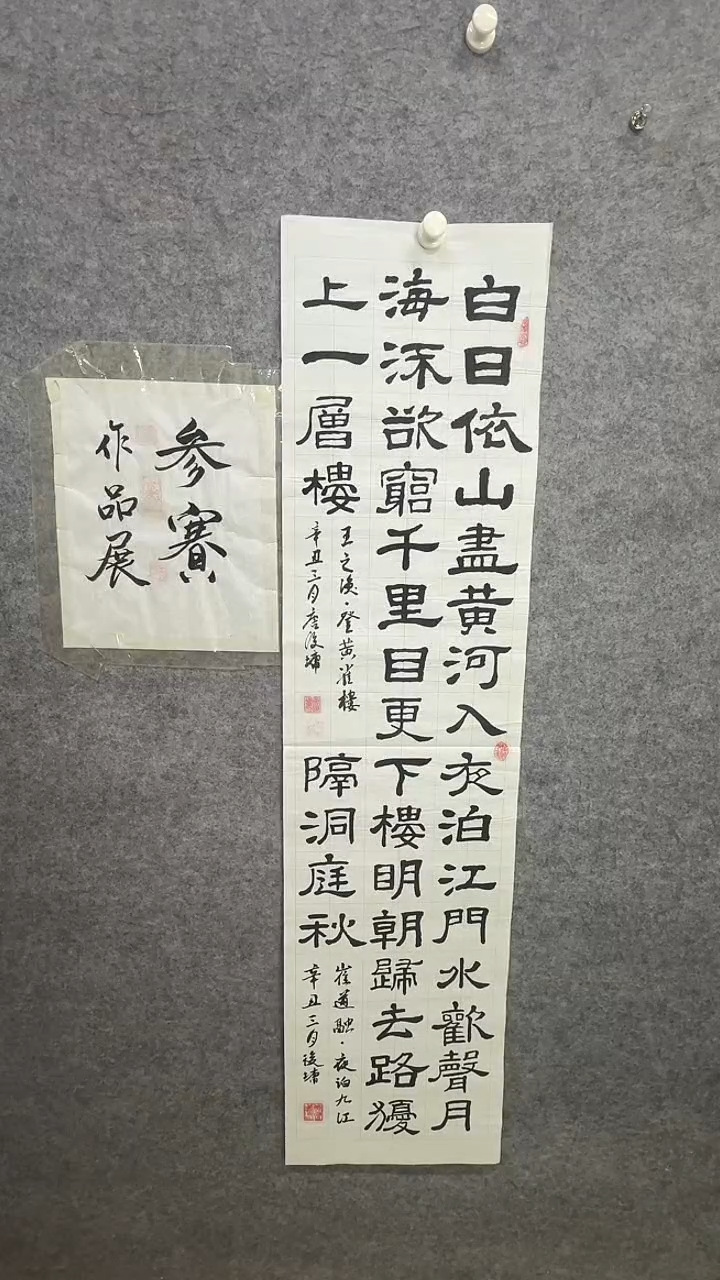 白日依山盡黃河入
海流欲窮千里目更
上一層樓
王之渙·登黃雀樓
辛丑三月
夜泊江門水歡聲月
下樓明朝歸去路獶
隔洞庭秋
崔道融·夜泊九江
辛丑三月
参賽
作品展